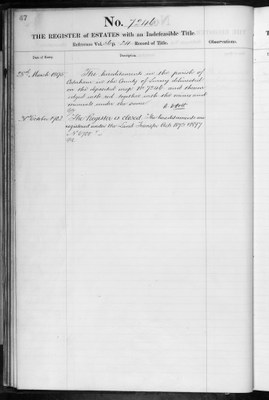 47
No. 7246
THE REGISTER of ESTATES with an Indefeasible Title.
Reference Vol. p Record of Title.
Observations.
Date of Entry.
Description.
25th March 1895
The hereditaments in the parish of
in the County of Surrey delineated
on the deposited map No 7246 and thereon
edged with red together with the mines and
minerals under the same
The Register is closed The hereditaments are
registered under the Land Transfer Acts 1875 1897